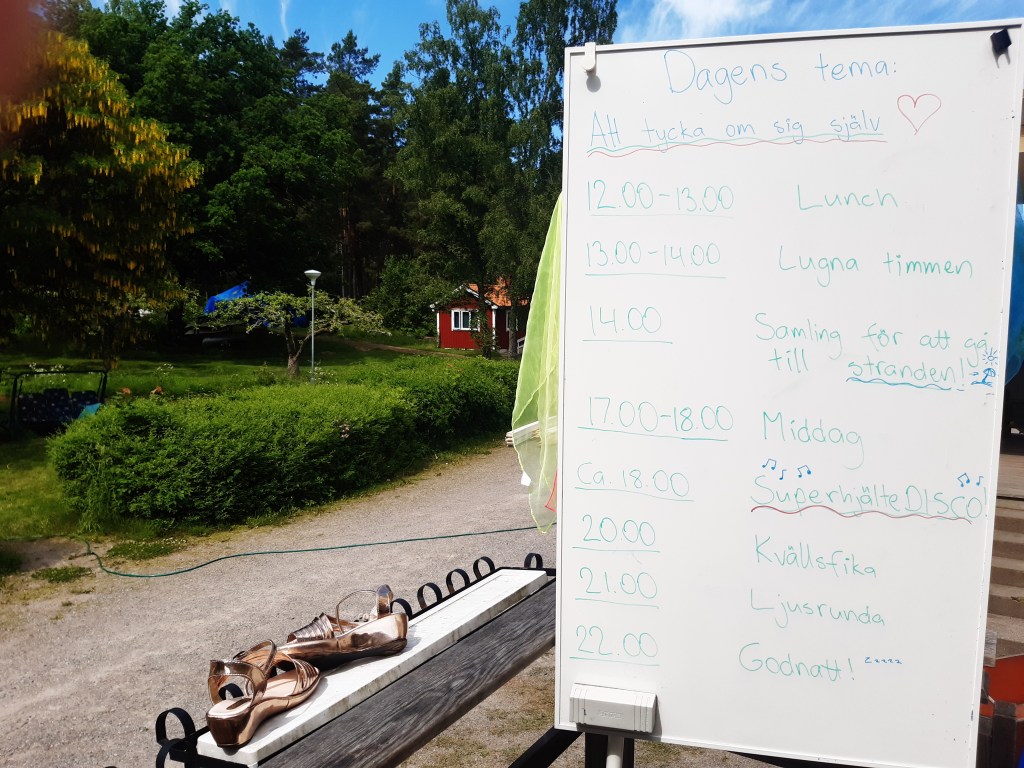 Dagens tema:
Att tycka om sig själv
12.00-13.00 Lunch
13.00-14.00 Lugna timmen
14.00 Samling för att gå
till stranden!
17.00-18.00 Middag
Ca. 18.00 SuperhjälteDISCO!
20.00 Kvällsfika
21.00 Ljusrunda
22.00 Godnatt! zzzzz